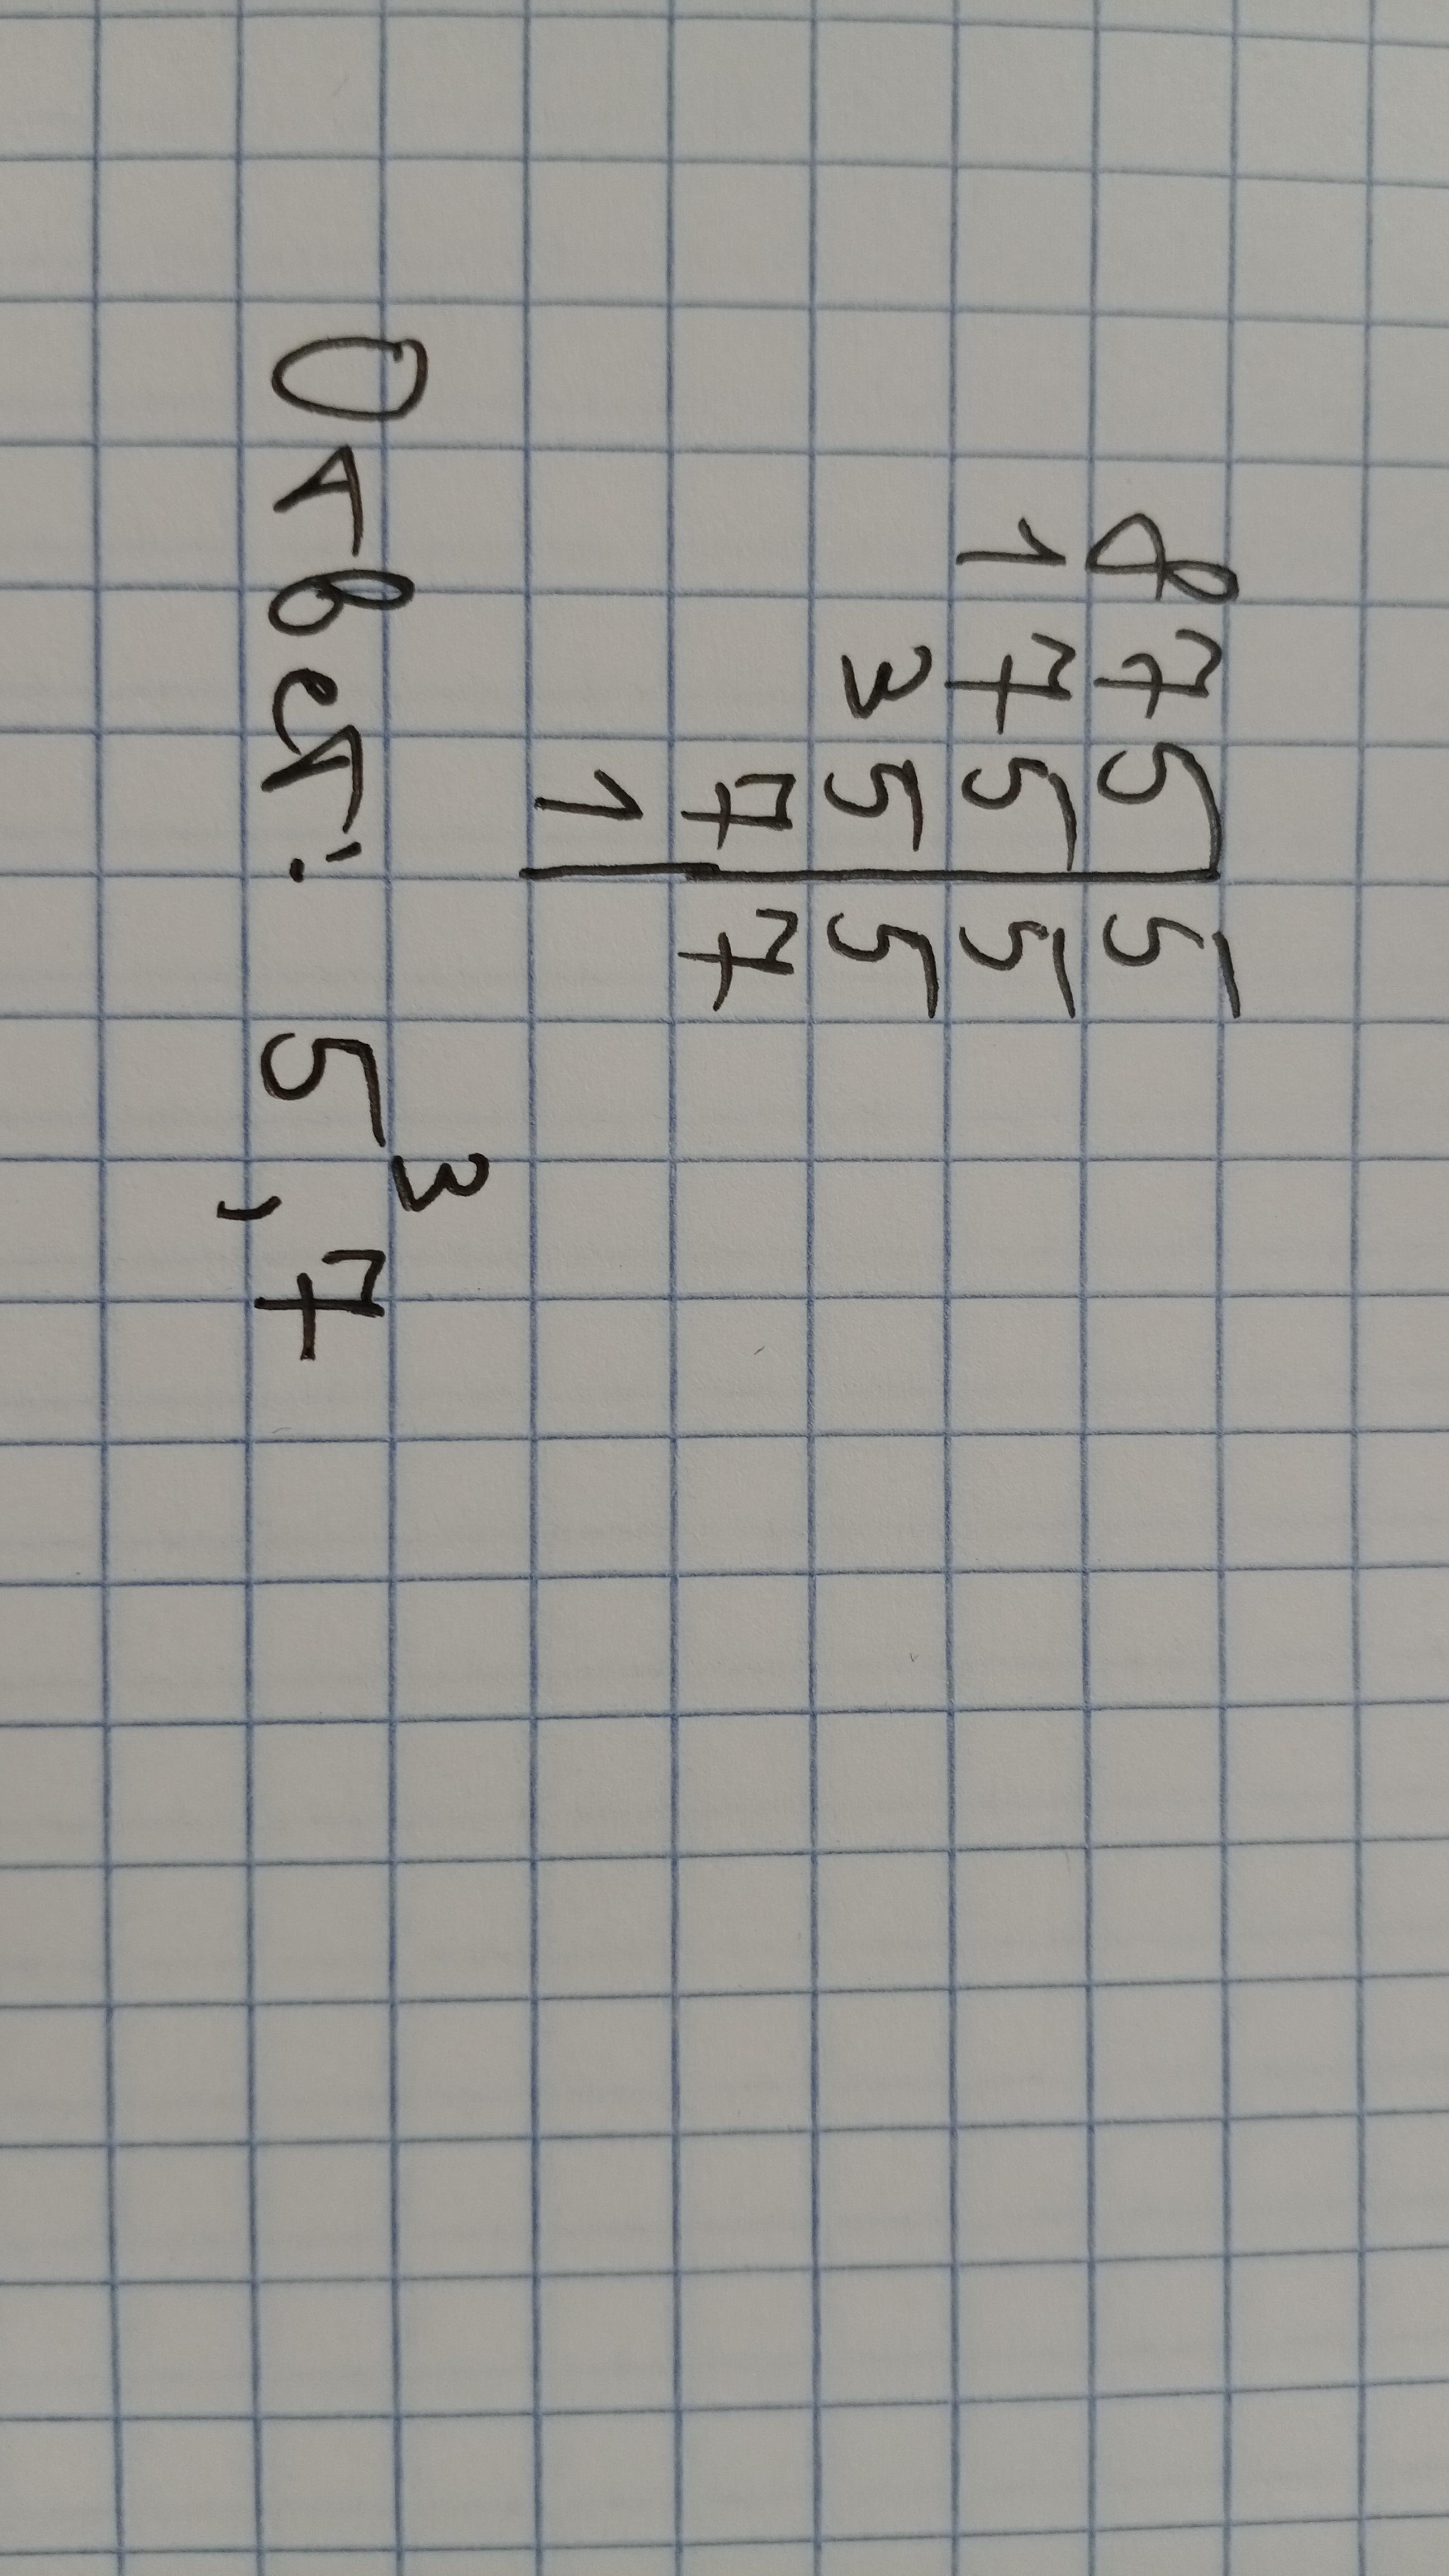 875|5
175|5
35|5
7|7
1|
Ответ: 5³, 7